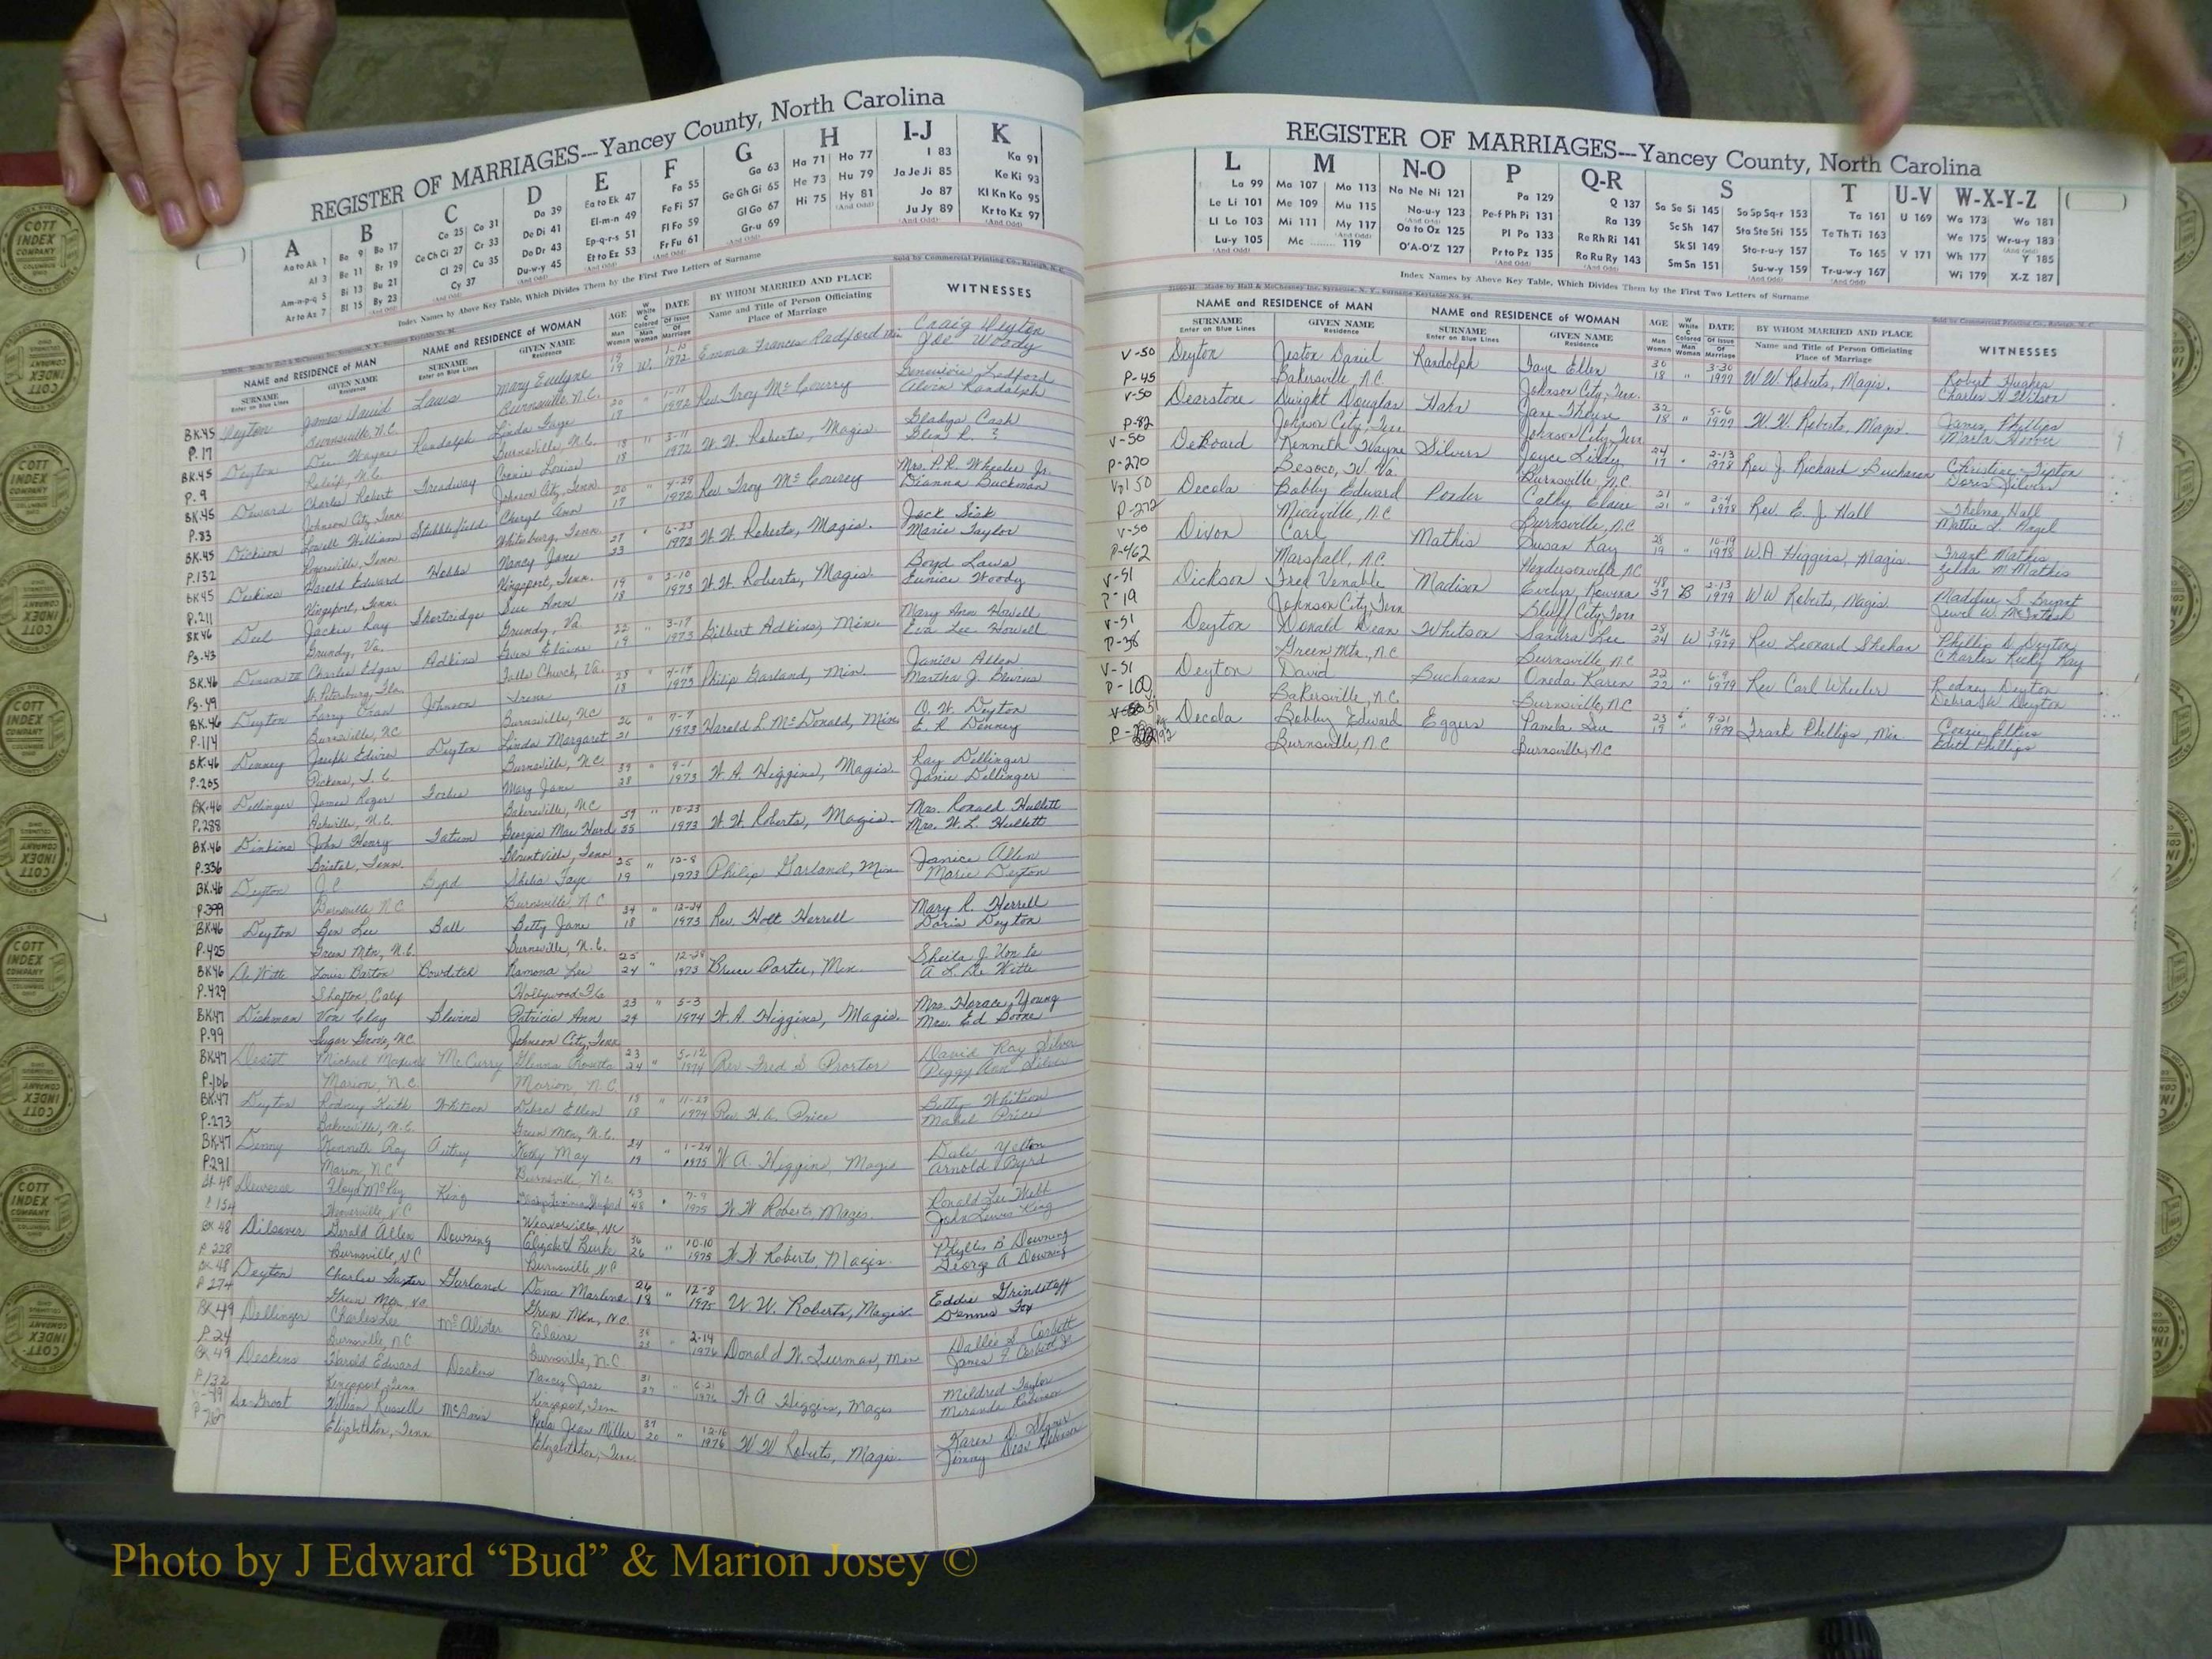 REGISTER OF MARRIAGES---Yancey County, North Carolina
A B C D E F G H I-J K
Aa to Ak 1 Ba 9 Bo 17 Ca 25 Co 31 Da 39 Ea to Ek 47 Fa 55 Ga 63 Ha 71 Ho 77 I 83 Ka 91
Al 3 Be 11 Br 19 Ce Ch Ci 27 Cr 33 De Di 41 El-m-n 49 Fe Fi 57 Ge Gh Gi 65 He 73 Hu 79 Ja Je Ji 85 Ke Ki 93
Am-n-p-q 5 Bi 13 Bu 21 Cl 29 Cu 35 Do Dr 43 Ep-q-r-s 51 Fl Fo 59 Gl Go 67 Hi 75 Hy 81 Jo 87 Kl Kn Ko 95
Ar to Az 7 Bl 15 By 23 Cy 37 Du-w-y 45 Et to Ez 53 Fr Fu 61 Gr-u 69 Ju Jy 89 Kr to Kz 97
Index Names by Above Key Table, Which Divides Them by the First Two Letters of Surname
Sold by Commercial Printing Co., Raleigh, N. C.
NAME and RESIDENCE OF MAN NAME and RESIDENCE OF WOMAN AGE DATE BY WHOM MARRIED AND PLACE WITNESSES
SURNAME GIVEN NAME SURNAME GIVEN NAME Name and Title of Person Officiating
Enter on Blue Lines Residence Enter on Blue Lines Residence Place of Marriage
BK.45 Deyton James David Laws Mary Evelyne 19 W. 1972 Emma Frances Radford Craig Deyton
P.17 Burnsville, N.C. Burnsville, N.C. 19 Joe Woody
BK.45 Deyton Dee Wayne Randolph Linda Faye 20 " 1972 Rev. Troy McCourry Genevieve Ledford
P.9 Burnsville, N.C. 17 Alvin Randolph
BK.45 Charles Robert Treadway Connie Louise 18 " 3-11 1972 W. W. Roberts, Magis. Gladys Cash
P.83 Johnson City, Tenn. Johnson City, Tenn. 18 Glen R. ?
BK.45 Dickson Lowell William Stubblefield Cheryl Ann 20 " 4-29 1972 Rev. Troy McCourry Mrs. P.R. Wheeler Jr.
P.132 Rogersville, Tenn. Whitesburg, Tenn. 17 Dianna Buckman
BK45 Deskins Harold Edward Hobbs Nancy Jane 27 " 6-23 1972 W. W. Roberts, Magis. Jack Sisk
P.211 Kingsport, Tenn. Kingsport, Tenn. 23 Marie Taylor
BK46 Deel Jackie Ray Shortridge Sue Ann 19 " 3-10 1973 W. W. Roberts, Magis. Boyd Laws
Pg.43 Grundy, Va. Grundy, Va 18 Eunice Woody
BK.46 Denson III Charles Edgar Adkins Gwen Elaine 22 " 3-17 1973 Gilbert Adkins, Min. Mary Ann Howell
Pg.49 St. Petersburg, Fla. Falls Church, Va. 19 Eva Lee Howell
BK.46 Deyton Larry Johnson Irene 25 " 4-14 1973 Philip Garland, Min. Janice Allen
P.114 Burnsville, NC Burnsville, NC 18 Martha J. Blevins
BK.46 Denney Joseph Edwin Deyton Linda Margaret 26 " 7-7 1973 Harold L. McDonald, Min. O. W. Deyton
P.205 Pickens, S. C. Burnsville, NC 21 E. R. Denney
BK.46 Dellinger James Roger Forbes Mary Jane 39 " 9-1 1973 W. A. Higgins, Magis. Ray Dellinger
P.288 Asheville, N.C. Bakersville, NC 28 Janie Dellinger
BK.46 Dinkins John Henry Tatum Georgia Mae Hurd 59 " 10-23 1973 W. W. Roberts, Magis. Mrs. Ronald Hullett
P.336 Bristol, Tenn. Blountville, Tenn 55 Mrs. W. L. Hullett
BK.46 Deyton J.C. Byrd Shelia Faye 25 " 12-8 1973 Philip Garland, Min Janice Allen
P.399 Burnsville, N.C. Burnsville, N.C 19 Marie Deyton
BK.46 Deyton Ben Lee Ball Betty Jane 34 " 12-24 1973 Rev. Holt Herrell Mary R. Herrell
P.425 Green Mtn, N.C. Burnsville, N.C. 18 Doris Deyton
BK46 DeWitt Louis Barton Bowditch Ramona Lee 25 " 12-28 1973 Bruce Porter, Min. Sheila J.
P.429 Shafton, Calif Hollywood Fla 24 A. L. De Witte
BK47 Dishman Von Clay Blevins Patricia Ann 23 " 5-3 1974 W. A. Higgins, Magis. Mrs. Horace Young
P.99 Sugar Grove, NC Johnson City, Tenn 24 Mrs. Ed Boone
BK47 Michael McCurry Glenna 23 " 5-12 1974 Rev. Fred S. Proctor David Ray Silver
P.106 Marion, N.C. Marion N.C. 24 Peggy Ann Silver
BK.47 Deyton Rodney Keith Whitson Debra Ellen 18 " 11-29 1974 Rev. H. A. Price Betty Whitson
P.273 Bakersville, N.C. Green Mtn, N.C. 18 Mabel Price
BK.47 Denny Kenneth Ray Autrey Kathy May 24 " 1-24 1975 W. A. Higgins, Magis Dale Yelton
P.291 Marion, NC Burnsville, NC. 19 Arnold Byrd
BK.48 Deweese Floyd McKay King 43 " 7-7 1975 W. W. Roberts, Magis. Ronald Lee Webb
P.154 Weaverville, N.C Weaverville, NC 48 John Lewis King
BK.48 Dilsaver Gerald Allen Downing Elizabeth Burke 36 " 10-10 1975 W. W. Roberts, Magis. Phyllis B Downing
P.228 Burnsville, NC Burnsville, NC 26 George A Downing
BK.48 Deyton Charles Garland Dana Marlene 26 " 12-8 1975 W. W. Roberts, Magis. Eddie Grindstaff
P.274 Green Mtn. NC. Green Mtn, N.C. 18 Dennis Fox
BK.49 Dellinger Charles Lee McAlister Elaine " 2-14 1976 Donald W. Turman, Min Dallie S. Corbett
P.24 Burnsville, NC Burnsville, N.C James F. Corbett Jr
BK.49 Deskins Harold Edward Deskins Nancy Jane 31 " 6-21 1976 W. A Higgins, Magis Mildred Taylor
P.132 Kingsport, Tenn Kingsport, Tenn 27 Miranda
V-49 De Groot William Russell Jean Miller 37 " 12-16 1976 W. W Roberts, Magis. Karen D.
Elizabethton, Tenn Elizabethton, Tenn. 20 Jimmy Dean
REGISTER OF MARRIAGES---Yancey County, North Carolina
L M N-O P Q-R S T U-V W-X-Y-Z
La 99 Ma 107 Mo 113 Na Ne Ni 121 Pa 129 Q 137 Sa Se Si 145 So Sp Sq-r 153 Ta 161 U 169 Wa 173 Wo 181
Le Li 101 Me 109 Mu 115 No-u-y 123 Pe-f Ph Pi 131 Ra 139 Sc Sh 147 Sta Ste Sti 155 Te Th Ti 163 We 175 Wr-u-y 183
Ll Lo 103 Mi 111 My 117 Oa to Oz 125 Pl Po 133 Re Rh Ri 141 Sk Sl 149 Sto-r-u-y 157 To 165 V 171 Wh 177 Y 185
Lu-y 105 Mc 119 O'A-O'Z 127 Pr to Pz 135 Ro Ru Ry 143 Sm Sn 151 Su-w-y 159 Tr-u-w-y 167 Wi 179 X-Z 187
Index Names by Above Key Table, Which Divides Them by the First Two Letters of Surname
NAME and RESIDENCE OF MAN NAME and RESIDENCE OF WOMAN AGE DATE BY WHOM MARRIED AND PLACE WITNESSES
SURNAME GIVEN NAME SURNAME GIVEN NAME Name and Title of Person Officiating
Enter on Blue Lines Residence Enter on Blue Lines Residence Place of Marriage
V-50 Deyton Jeston Daniel Randolph Faye Ellen 30 " 3-30 1977 W. W. Roberts, Magis. Robert Hughes
P-45 Bakersville, N.C. Johnson City, Tenn. 18 Charles A. Wilson
V-50 Dearstone Dwight Douglas Hahn Jane 32 " 5-6 1977 W. W. Roberts, Magis. James Phillips
P-82 Johnson City, Tenn Johnson City, Tenn 18 Marla Hoover
V-50 DeBoard Kenneth Wayne Silvers Joyce 24 " 2-13 1978 Rev J. Richard Buchanan Christine Tipton
P-270 Besoco, W. Va. Burnsville, N.C. 17 Doris Silvers
Vol 50 Decola Bobby Edward Ponder Cathy Elaine 21 " 3-4 1978 Rev. E. J. Hall Thelma Hall
P-272 Micaville, N.C Burnsville, N.C 21 Mattie L. Angel
V-50 Dixon Carl Mathis Susan Kay 28 " 10-19 1978 W.A. Higgins, Magis. Frank Mathis
P-462 Marshall, N.C. Hendersonville N.C 19 Zelda M Mathis
V-51 Dickson Fred Venable Madison Evelyn Rowena 48 B 2-13 1979 W W Roberts, Magis. Madeline S Bryant
P-19 Johnson City, Tenn Bluff City, Tenn 37 Jewel W. McIntosh
V-51 Deyton Donald Dean Whitson Sandra Lee 28 W 3-16 1979 Rev Leonard Shehan Phillip D Deyton
P-38 Green Mtn, N.C Burnsville, N.C 24 Charles Ricky Ray
V-51 Deyton David Buchanan Oneda Karen 22 " 6-9 1979 Rev Carl Wheeler Rodney Deyton
P-100 Bakersville, N.C. Burnsville, N.C 22 Debra W. Deyton
Decola Bobby Edward Eggers Pamela Sue 23 " 9-21 1979 Frank Phillips, Min. Connie Elkins
Burnsville, N.C Burnsville, N.C 19 Edith Phillips
Photo by J Edward “Bud” & Marion Josey ©
COTT INDEX COMPANY